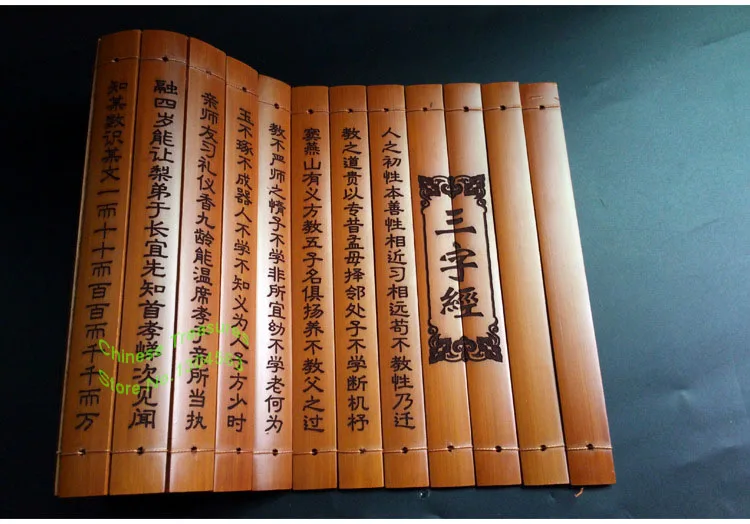 三字經
人之初性本善性相近习相远苟不教性乃迁
教之道贵以专昔孟母择邻处子不学断机杼
窦燕山有义方教五子名俱扬养不教父之过
教不严师之惰子不学非所宜幼不学老何为
玉不琢不成器人不学不知义为人子方少时
亲师友习礼仪香九龄能温席孝于亲所当执
融四岁能让梨弟于长宜先知首孝悌次见闻
知某数识某文一而十十而百百而千千而万
Chinese Treasures
Store No.